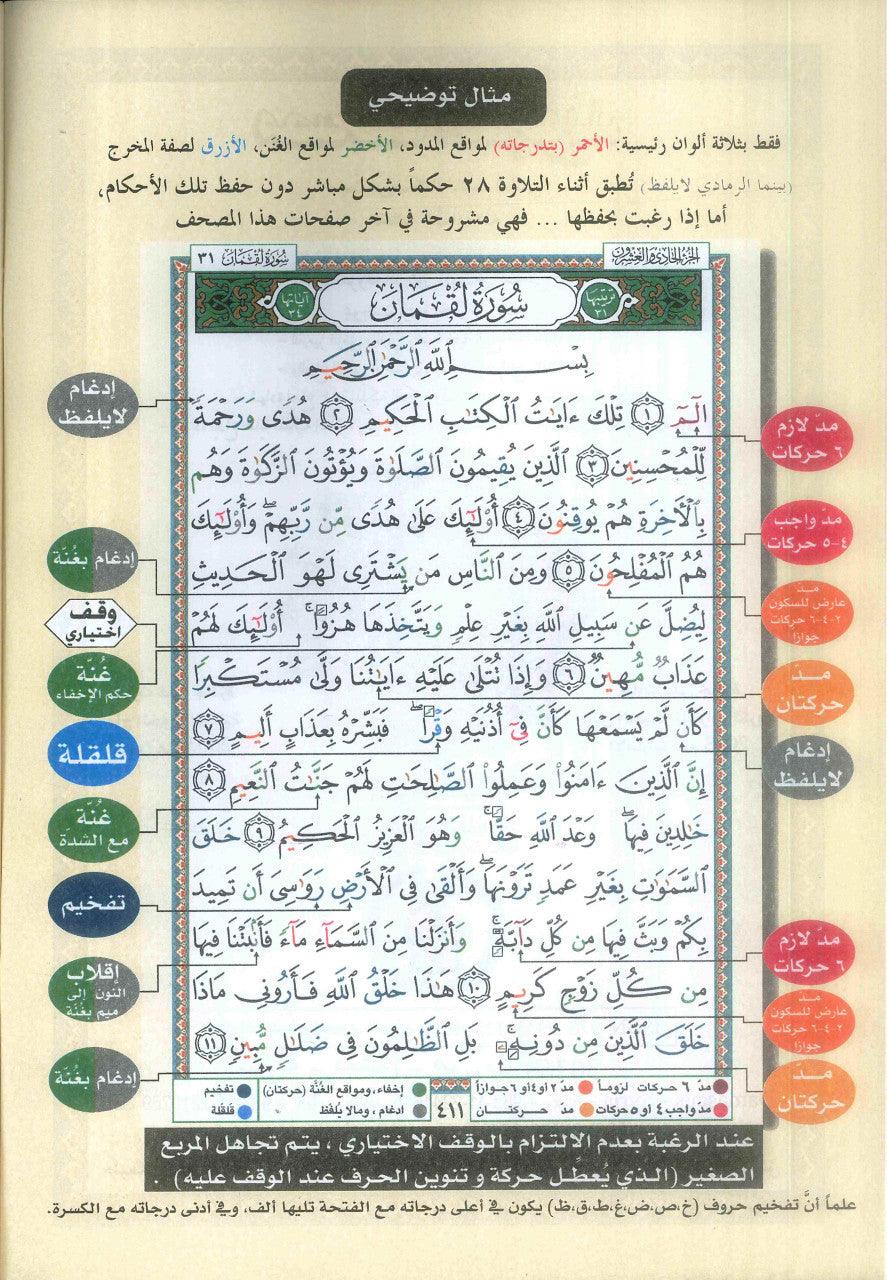 مثال توضيحي
فقط بثلاثة ألوان رئيسية: الأحمر (بتدرجاته) لمواقع المدود، الأخضر لمواقع الغُنَن، الأزرق لصفة المخرج
(بينما الرمادي لايلفظ) تُطبق أثناء التلاوة ٢٨ حكماً بشكل مباشر دون حفظ تلك الأحكام،
أما إذا رغبت بحفظها ... فهي مشروحة في آخر صفحات هذا المصحف
الجزء الحادي والعشرون
سورة لقمان ٣١
ترتيبها ٣١
سُورَةُ لُقْمَان
آياتها ٣٤
بِسْمِ اللَّهِ الرَّحْمَٰنِ الرَّحِيمِ
الٓمٓ ١ تِلْكَ ءَايَٰتُ الْكِتَٰبِ الْحَكِيمِ ٢ هُدًى وَرَحْمَةً
لِّلْمُحْسِنِينَ ٣ الَّذِينَ يُقِيمُونَ الصَّلَوٰةَ وَيُؤْتُونَ الزَّكَوٰةَ وَهُم
بِالْأَخِرَةِ هُمْ يُوقِنُونَ ٤ أُوْلَٰٓئِكَ عَلَىٰ هُدًى مِّن رَّبِّهِمْ ۖ وَأُوْلَٰٓئِكَ
هُمُ الْمُفْلِحُونَ ٥ وَمِنَ النَّاسِ مَن يَشْتَرِى لَهْوَ الْحَدِيثِ
لِيُضِلَّ عَن سَبِيلِ اللَّهِ بِغَيْرِ عِلْمٍ وَيَتَّخِذَهَا هُزُوًا ۚ أُوْلَٰٓئِكَ لَهُمْ
عَذَابٌ مُّهِينٌ ٦ وَإِذَا تُتْلَىٰ عَلَيْهِ ءَايَٰتُنَا وَلَّىٰ مُسْتَكْبِرًا
كَأَن لَّمْ يَسْمَعْهَا كَأَنَّ فِىٓ أُذُنَيْهِ وَقْرًا ۖ فَبَشِّرْهُ بِعَذَابٍ أَلِيمٍ ٧
إِنَّ الَّذِينَ ءَامَنُوا وَعَمِلُوا الصَّٰلِحَٰتِ لَهُمْ جَنَّٰتُ النَّعِيمِ ٨
خَٰلِدِينَ فِيهَا ۖ وَعْدَ اللَّهِ حَقًّا ۚ وَهُوَ الْعَزِيزُ الْحَكِيمُ ٩ خَلَقَ
السَّمَٰوَٰتِ بِغَيْرِ عَمَدٍ تَرَوْنَهَا ۖ وَأَلْقَىٰ فِى الْأَرْضِ رَوَٰسِىَ أَن تَمِيدَ
بِكُمْ وَبَثَّ فِيهَا مِن كُلِّ دَآبَّةٍ ۚ وَأَنزَلْنَا مِنَ السَّمَآءِ مَآءً فَأَنۢبَتْنَا فِيهَا
مِن كُلِّ زَوْجٍ كَرِيمٍ ١٠ هَٰذَا خَلْقُ اللَّهِ فَأَرُونِى مَاذَا
خَلَقَ الَّذِينَ مِن دُونِهِ ۚ بَلِ الظَّٰلِمُونَ فِى ضَلَٰلٍ مُّبِينٍ ١١
مدّ لازم
٦ حركات
مدّ واجب
٤-٥ حركات
مد
عارض للسكون
٢-٤-٦ حركات
جوازاً
مدّ
حركتان
إدغام
لايلفظ
مدّ لازم
٦ حركات
مد
عارض للسكون
٢-٤-٦ حركات
جوازاً
مدّ
حركتان
إدغام
لايلفظ
إدغام بغُنّة
وقف
اختياري
غُنّة
حكم الإخفاء
قلقلة
غُنّة
مع الشدة
تفخيم
إقلاب
النون إلى
ميم بغُنّة
إدغام بغُنّة
مدّ ٦ حركات لزوماً مدّ ٢ أو ٤ أو ٦ جوازاً
مدّ واجب ٤ أو ٥ حركات مدّ حركتان
٤١١
إخفاء، ومواقع الغُنَّة (حركتان) تفخيم
إدغام ، ومالا يُلفظ قلقلة
عند الرغبة بعدم الالتزام بالوقف الاختياري ، يتم تجاهل المربع
الصغير (الذي يُعطِّل حركة و تنوين الحرف عند الوقف عليه) .
علماً أنَّ تفخيم حروف (خ،ص،ض،غ،ط،ق،ظ) يكون في أعلى درجاته مع الفتحة تليها ألف، وفي أدنى درجاته مع الكسرة.